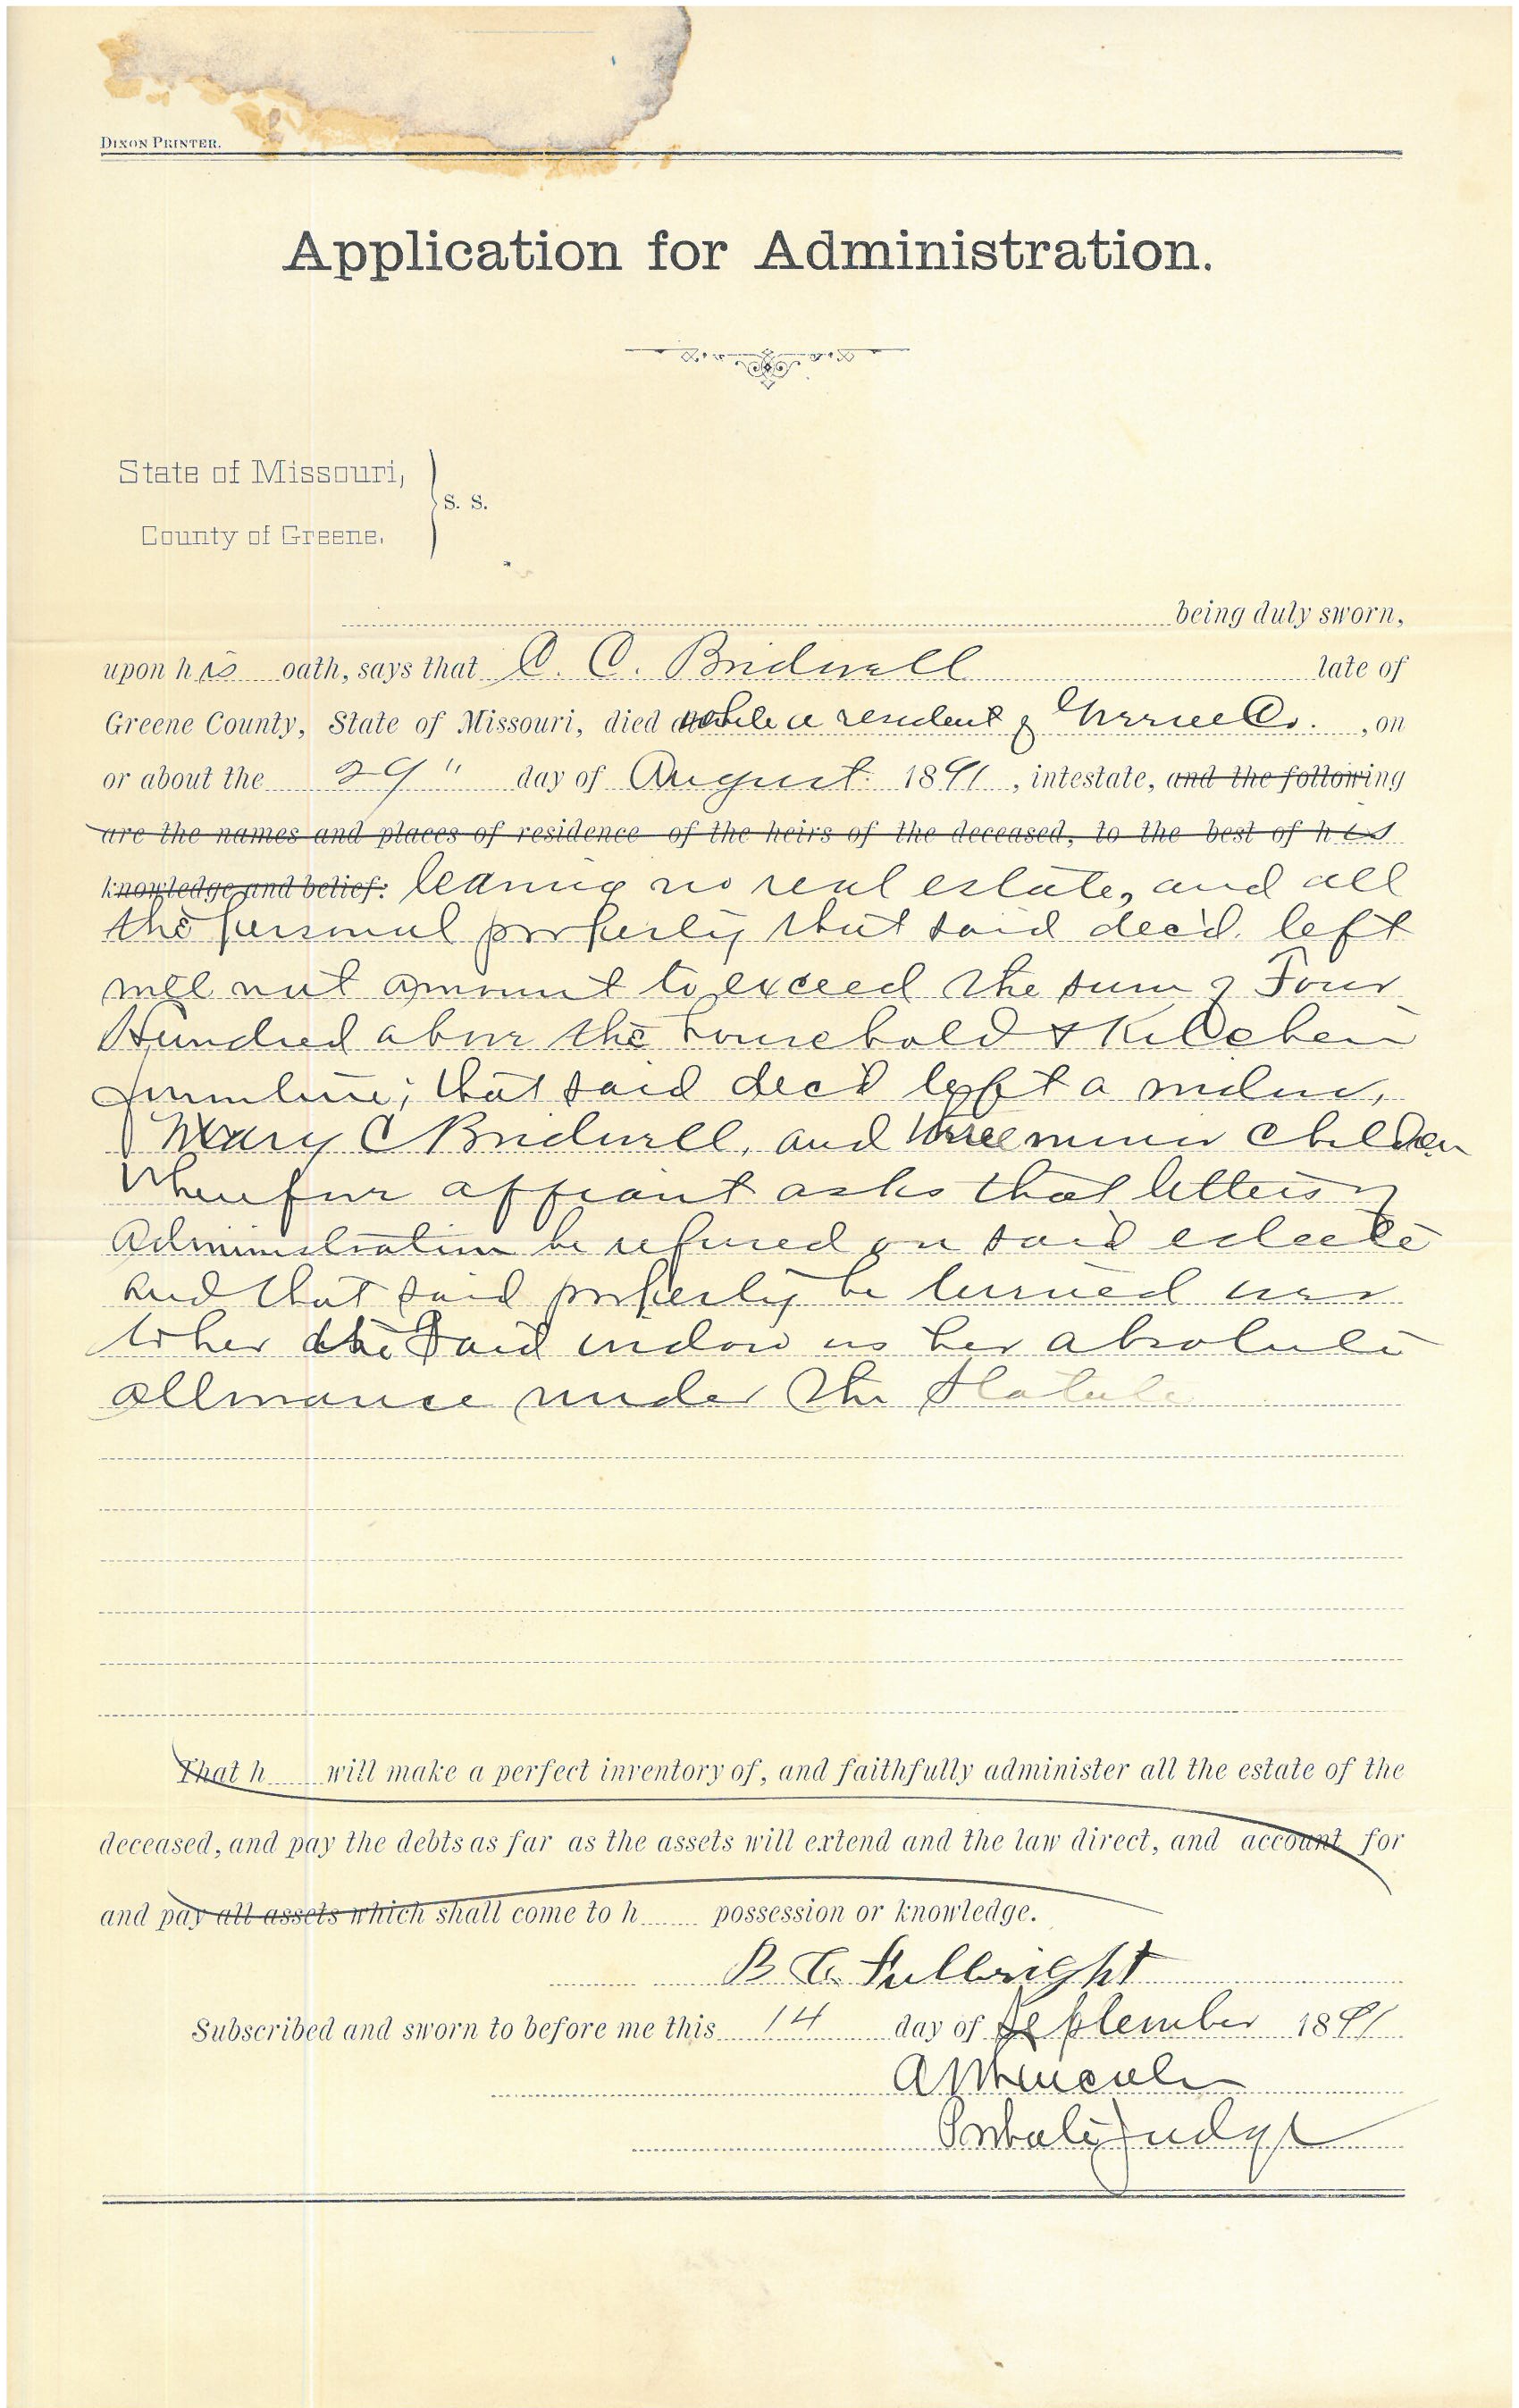 DIXON PRINTER.
Application for Administration.
State of Missouri,
S. S.
County of Greene.
being duly sworn,
upon his oath, says that C. C. Bridwell late of
Greene County, State of Missouri, died while a resident of Greene Co. , on
or about the 29" day of August 1891 , intestate, and the following
are the names and places of residence of the heirs of the deceased, to the best of his
knowledge and belief: leaving no real estate, and all
the personal property that said dec'd. left
will not amount to exceed the sum of Four
Hundred above the household & Kitchen
furniture; that said dec'd left a widow,
Mary C Bridwell, and three minor children
Wherefore affiant asks that letters of
Administration be refused on said estate
and that said property be turned over
to her the said widow as her absolute
allowance under the Statute
That h will make a perfect inventory of, and faithfully administer all the estate of the
deceased, and pay the debts as far as the assets will extend and the law direct, and account for
and pay all assets which shall come to h possession or knowledge.
B. C. Fullbright
Subscribed and sworn to before me this 14 day of September 1891
Probate Judge